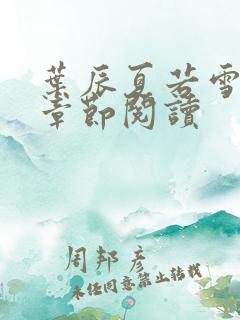 葉辰夏若雪
章節閱讀
周邦彥
未經同意禁止轉載